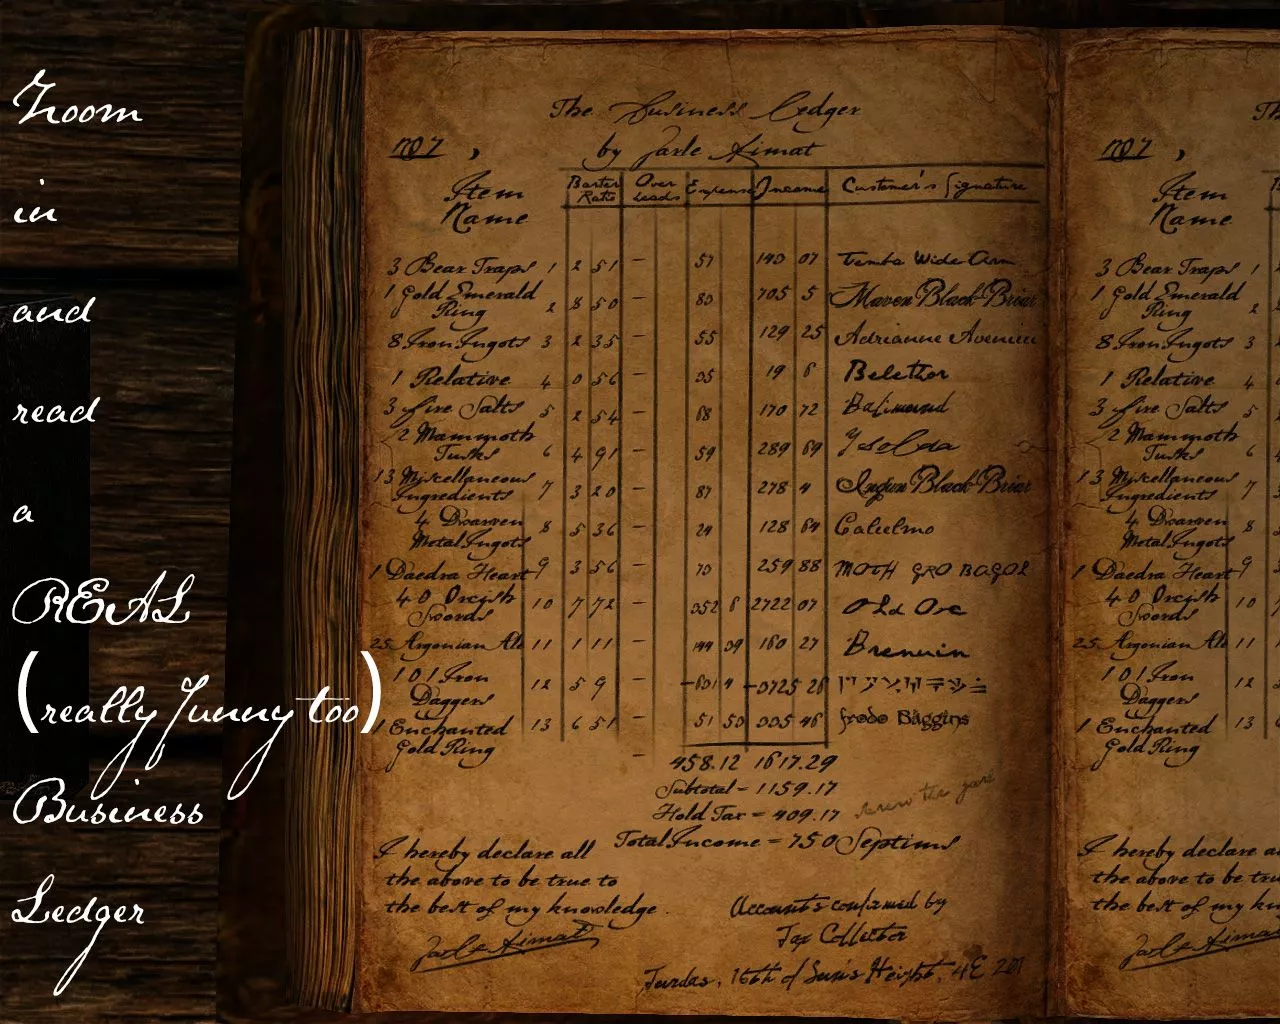 Zoom
in
and
read
a
REAL
(really funny too)
Business
Ledger
The Business Ledger
by Jarle Aimat
Item Name
Barter Rate
Over Leads
Expense
Income
Customer's Signature
3 Bear Traps 1 2 51 - 57 149 07 Temba Wide-Arm
1 Gold Emerald Ring 2 8 50 - 705 5 Maven Black-Briar
8 Iron Ingots 3 2 35 - 55 129 25 Adrianne Avenicci
1 Relative 4 0 56 - 19 Belethor
3 Fire Salts 5 2 54 - 68 170 72 Balimund
2 Mammoth Tusks 6 4 91 - 59 289 69 Ysolda
13 Miscellaneous Ingredients 7 3 20 - 87 278 4 Ingun Black-Briar
4 Dwarven Metal Ingots 8 5 36 - 24 128 64 Calcelmo
1 Daedra Heart 9 3 56 - 259 88 MOTH GRO BAGOL
40 Orcish Swords 10 7 72 - 2722 07 Old Orc
25 Argonian Ale 11 1 11 - 144 160 27 Brenuin
101 Iron Daggers 12 5 9 -
1 Enchanted Gold Ring 13 6 51 - 51 50 46 Frodo Baggins
- 458.12 1617.29
Subtotal - 1159.17
Hold Tax = 409.17
Total Income = 750 Septims
I hereby declare all
the above to be true to
the best of my knowledge.
Jarle Aimat
Accounts confirmed by
Tax Collector
Turdas, 16th of Sun's Height, 4E 201
Item
Name
3 Bear Traps 1
1 Gold Emerald Ring 2
8 Iron Ingots 3
1 Relative 4
3 Fire Salts 5
2 Mammoth Tusks 6
13 Miscellaneous Ingredients 7
4 Dwarven Metal Ingots 8
1 Daedra Heart 9
40 Orcish Swords 10
25 Argonian Ale 11
101 Iron Daggers 12
1 Enchanted Gold Ring 13
I hereby declare
the above to be
the best of my
Jarle Aimat